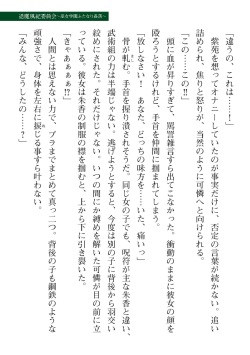 退魔風紀委員会
「違うの、これは……！」
紫苑を想ってオナニーしていたのが事実だけに、否定の言葉が続かない。追い
詰められ、焦りと怒りが、当然のように可憐へと向けられる。
「この……この‼」
頭に血が昇りすぎて、罵詈雑言すら出てこなかった。衝動のままに彼女の顔を
殴ろうとするけれど、手首を仲間に掴まれてしまう。
「放しなさい！　あなた、どっちの味方を……いった、痛いっ」
骨が軋む。手首を握り潰されそうだ。同じ女の子でも、呪符が主な朱香と違い、
武術級の力は半端じゃない。逃げようとすると、今度は別の子に背後から羽交い
絞めにされた。それだけじゃない。いつの間にか縛めを解いた可憐が目の前に立
っている。彼女は朱香の制服の襟を掴むと、上から下に引き裂いた。
「きゃあぁぁぁ‼」
人間とは思えない力で、ブラまでまとめて真っ二つ。背後の子も鋼鉄のような
頑強さで、身体を左右に捩じる事すら叶わない。
「みんな、どうしたの……⁉」